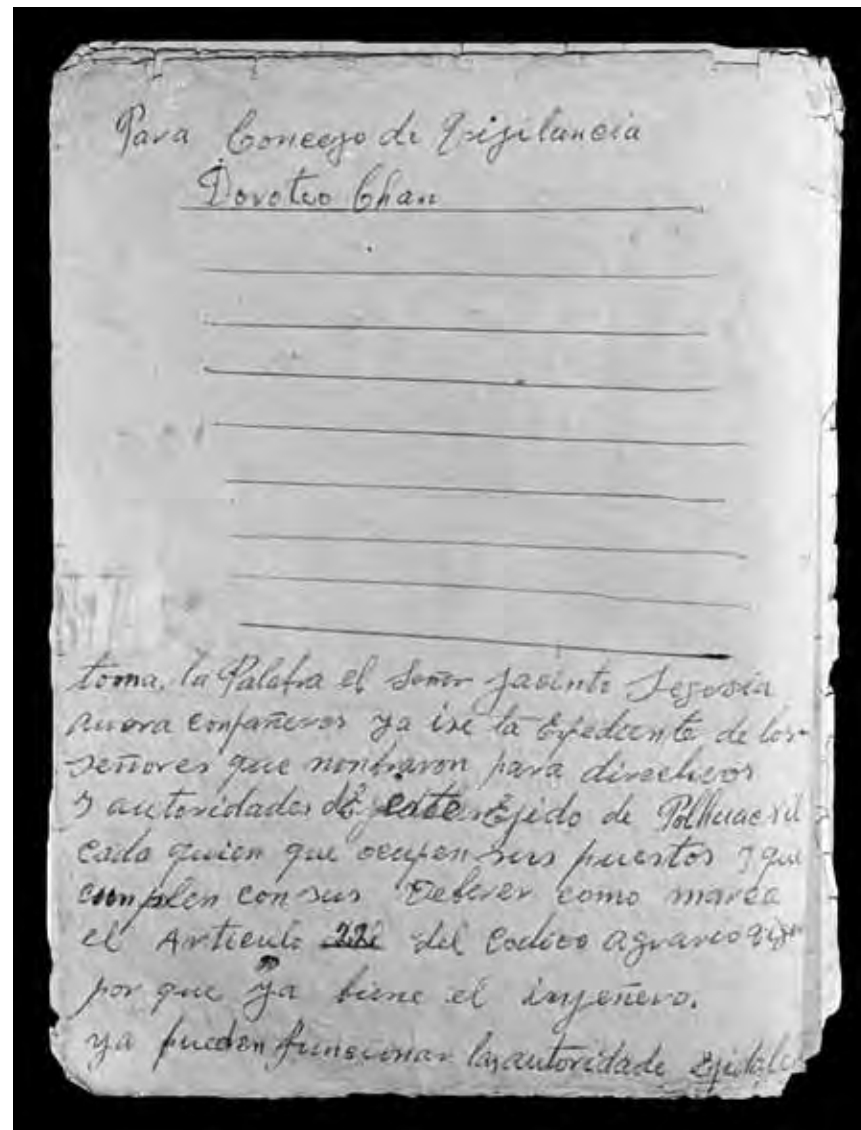 Para Concego de Vigilancia
Doroteo Chan
toma, la Palabra el Señor Jacinto Segovia
auora conpañeros ya ise la Espediente de los
señores que nonbraron para directivos
y autoridades de este Ejido de Polhuacxil
cada quien que ocupen sus puestos y que
cumplen con sus Deberes como marca
el Articulo del codico agrareo
por que ya biene el injenero.
ya pueden funcionar las autoridade Ejidales